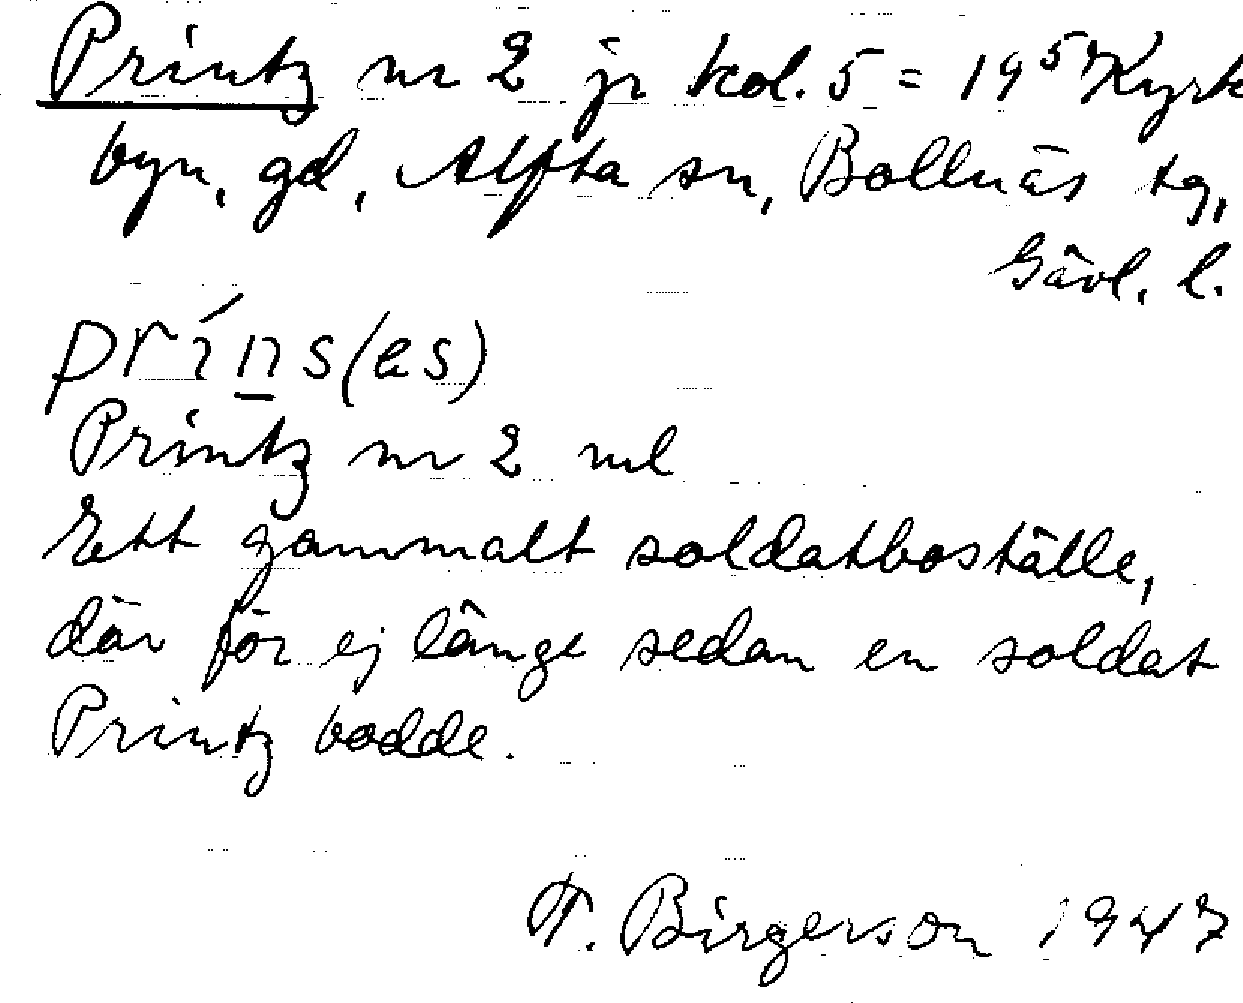 Printz nr 2 jr kol. 5 = 19⁵⁷ Kyrk
byn, gd, Alfta sn, Bollnäs tg,
Gävl. l.
príns(es)
Printz nr 2 ml
Ett gammalt soldatboställe,
där för ej länge sedan en soldat
Printz bodde.
F. Birgerson 1947